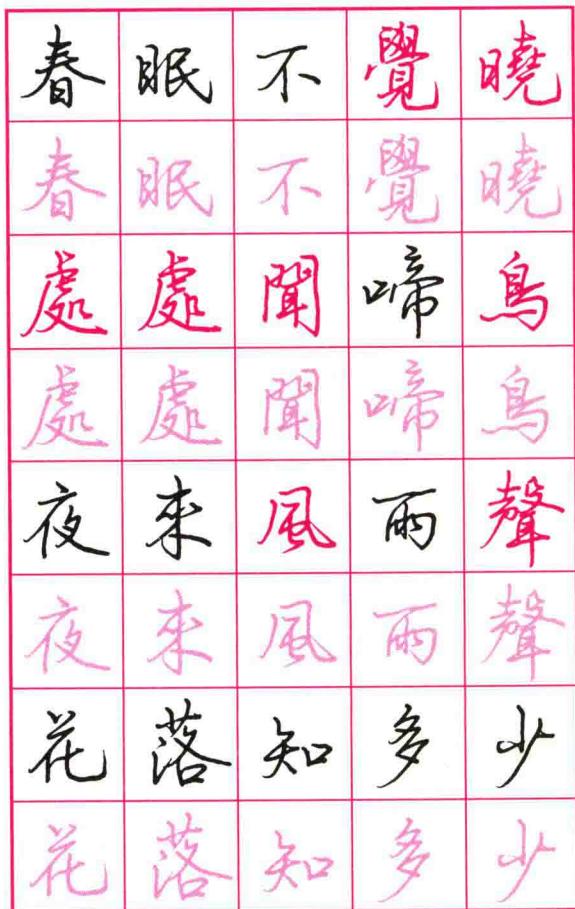 春眠不覺曉
春眠不覺曉
處處聞啼鳥
處處聞啼鳥
夜來風雨聲
夜來風雨聲
花落知多少
花落知多少